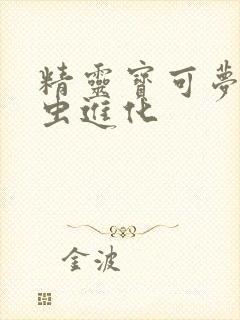 精靈寶可夢
虫進化
金波